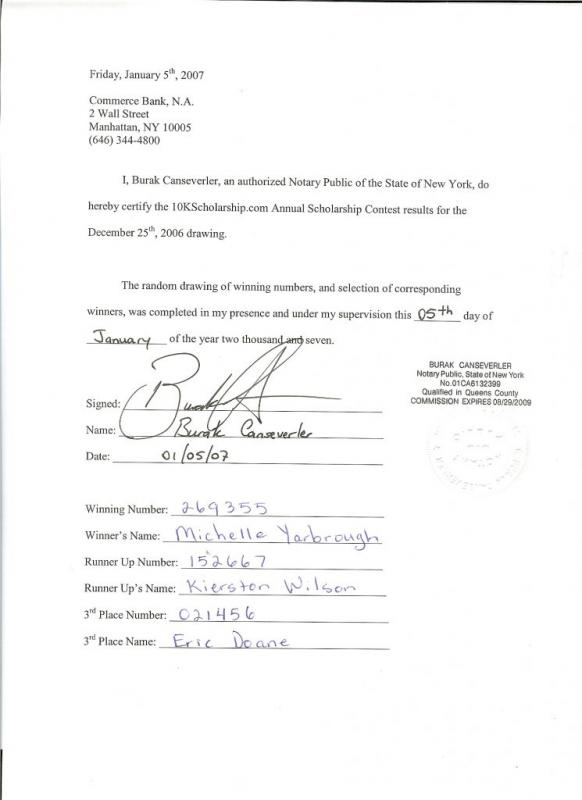 Friday, January 5th, 2007
Commerce Bank, N.A.
2 Wall Street
Manhattan, NY 10005
(646) 344-4800
I, Burak Canseverler, an authorized Notary Public of the State of New York, do
hereby certify the 10KScholarship.com Annual Scholarship Contest results for the
December 25th, 2006 drawing.
The random drawing of winning numbers, and selection of corresponding
winners, was completed in my presence and under my supervision this 05th day of
January of the year two thousand and seven.
BURAK CANSEVERLER
Notary Public, State of New York
No.01CA6132399
Qualified in Queens County
COMMISSION EXPIRES 08/29/2009
Signed: Burak
Name: Burak Canseverler
Date: 01/05/07
Winning Number: 269355
Winner's Name: Michelle Yarbrough
Runner Up Number: 152667
Runner Up's Name: Kierston Wilson
3rd Place Number: 021456
3rd Place Name: Eric Doane